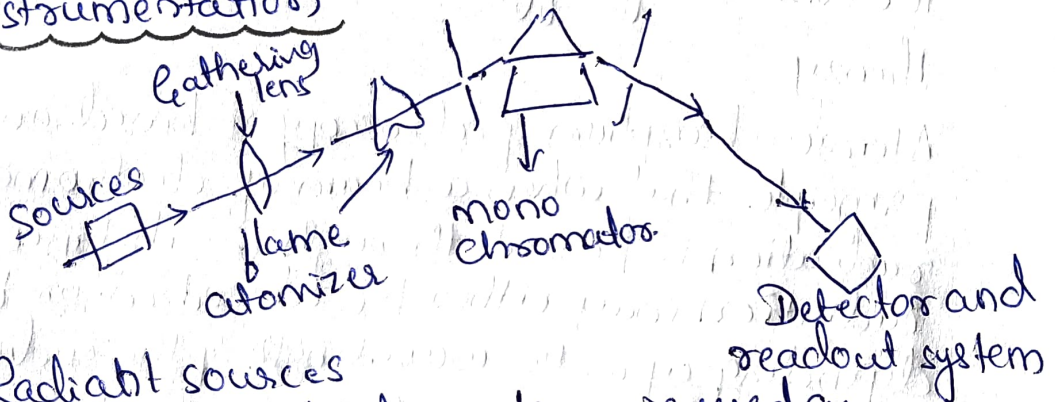 strumentation)
Gathering
lens
Sources
flame
atomizer
mono
chromator.
Detector and
readout system
Radiant sources